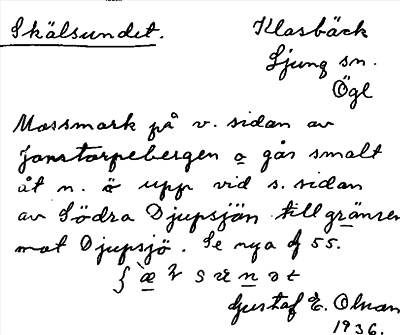 Skälsundet.
Klasbäck
Ljung sn.
Ögl
Mossmark på v. sidan av
Jonstorpebergen o går smalt
åt n. ö upp vid s. sidan
av Södra Djupsjön till gränsen
mot Djupsjö. Se nya 55.
Gustaf E. Olson
1936.